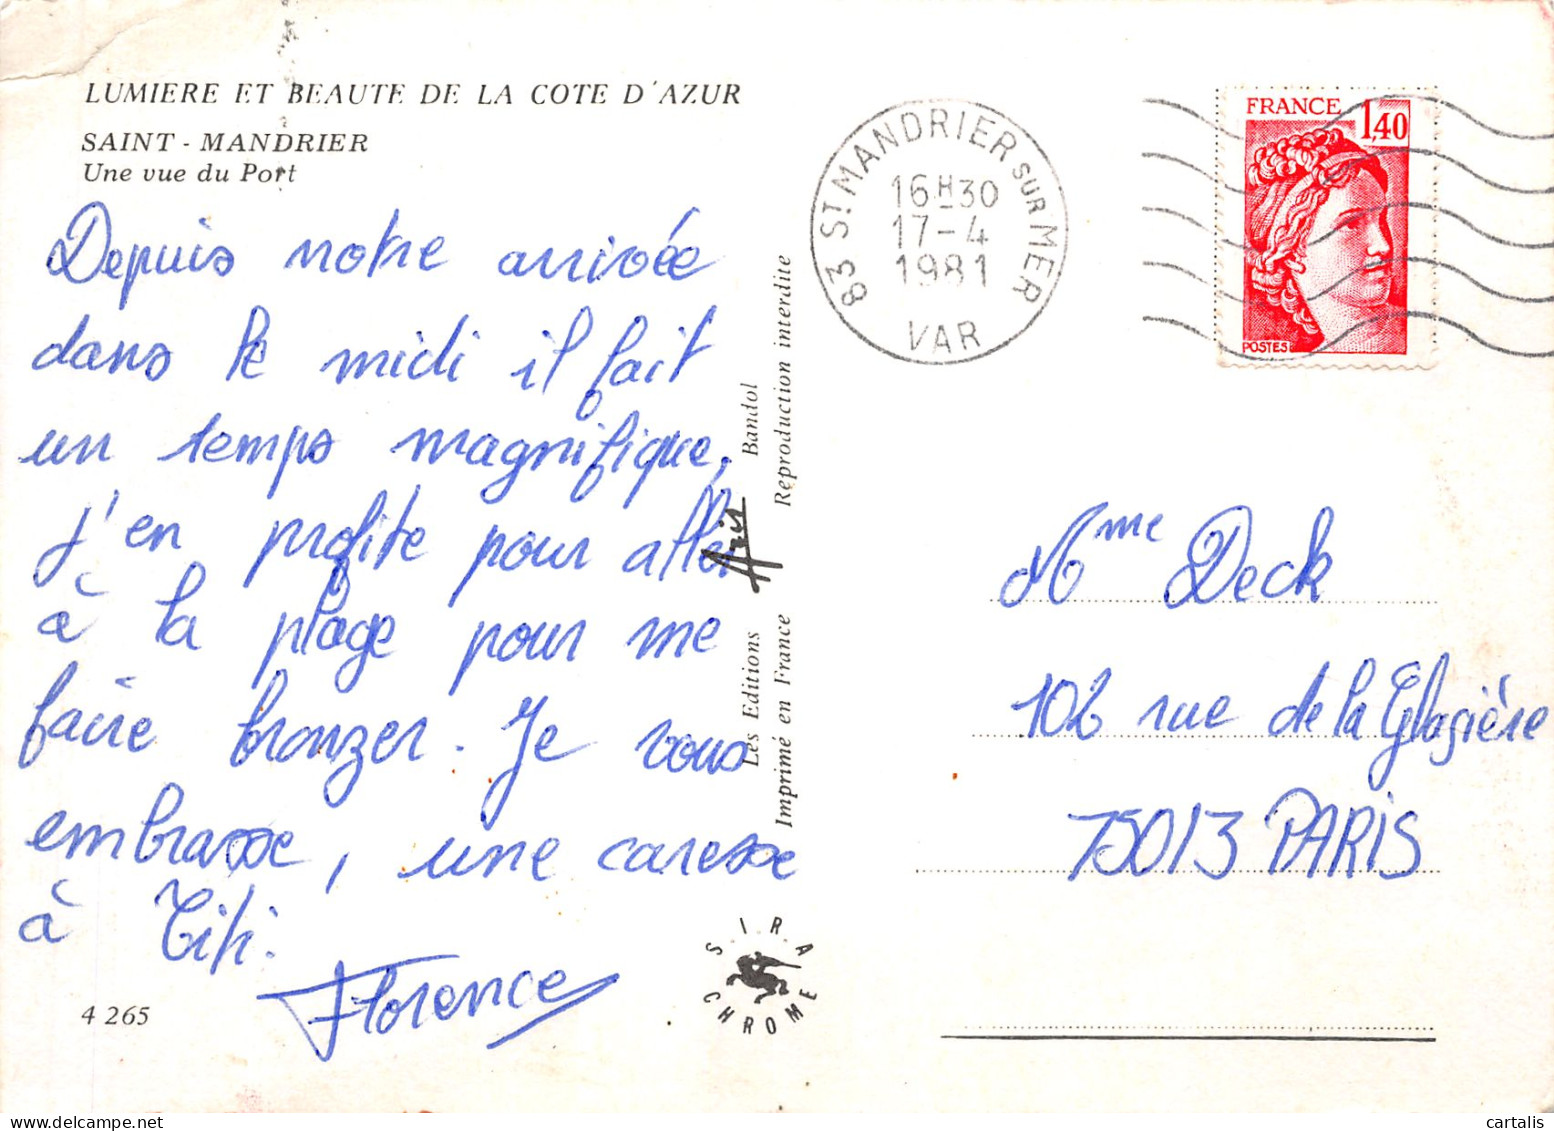 LUMIERE ET BEAUTE DE LA COTE D'AZUR
SAINT - MANDRIER
Une vue du Port
Depuis notre arrivée
dans le midi il fait
un temps magnifique,
j'en profite pour aller
à la plage pour me
faire bronzer. Je vous
embrasse, une caresse
à Titi.
Florence
4 265
Les Editions Aris Bandol
Imprimé en France Reproduction interdite
S.I.R.A.
CHROME
83 ST MANDRIER SUR MER
16H30
17-4
1981
VAR
FRANCE
1,40
POSTES
Mme Deck
102 rue de la Glacière
75013 PARIS
cartalis